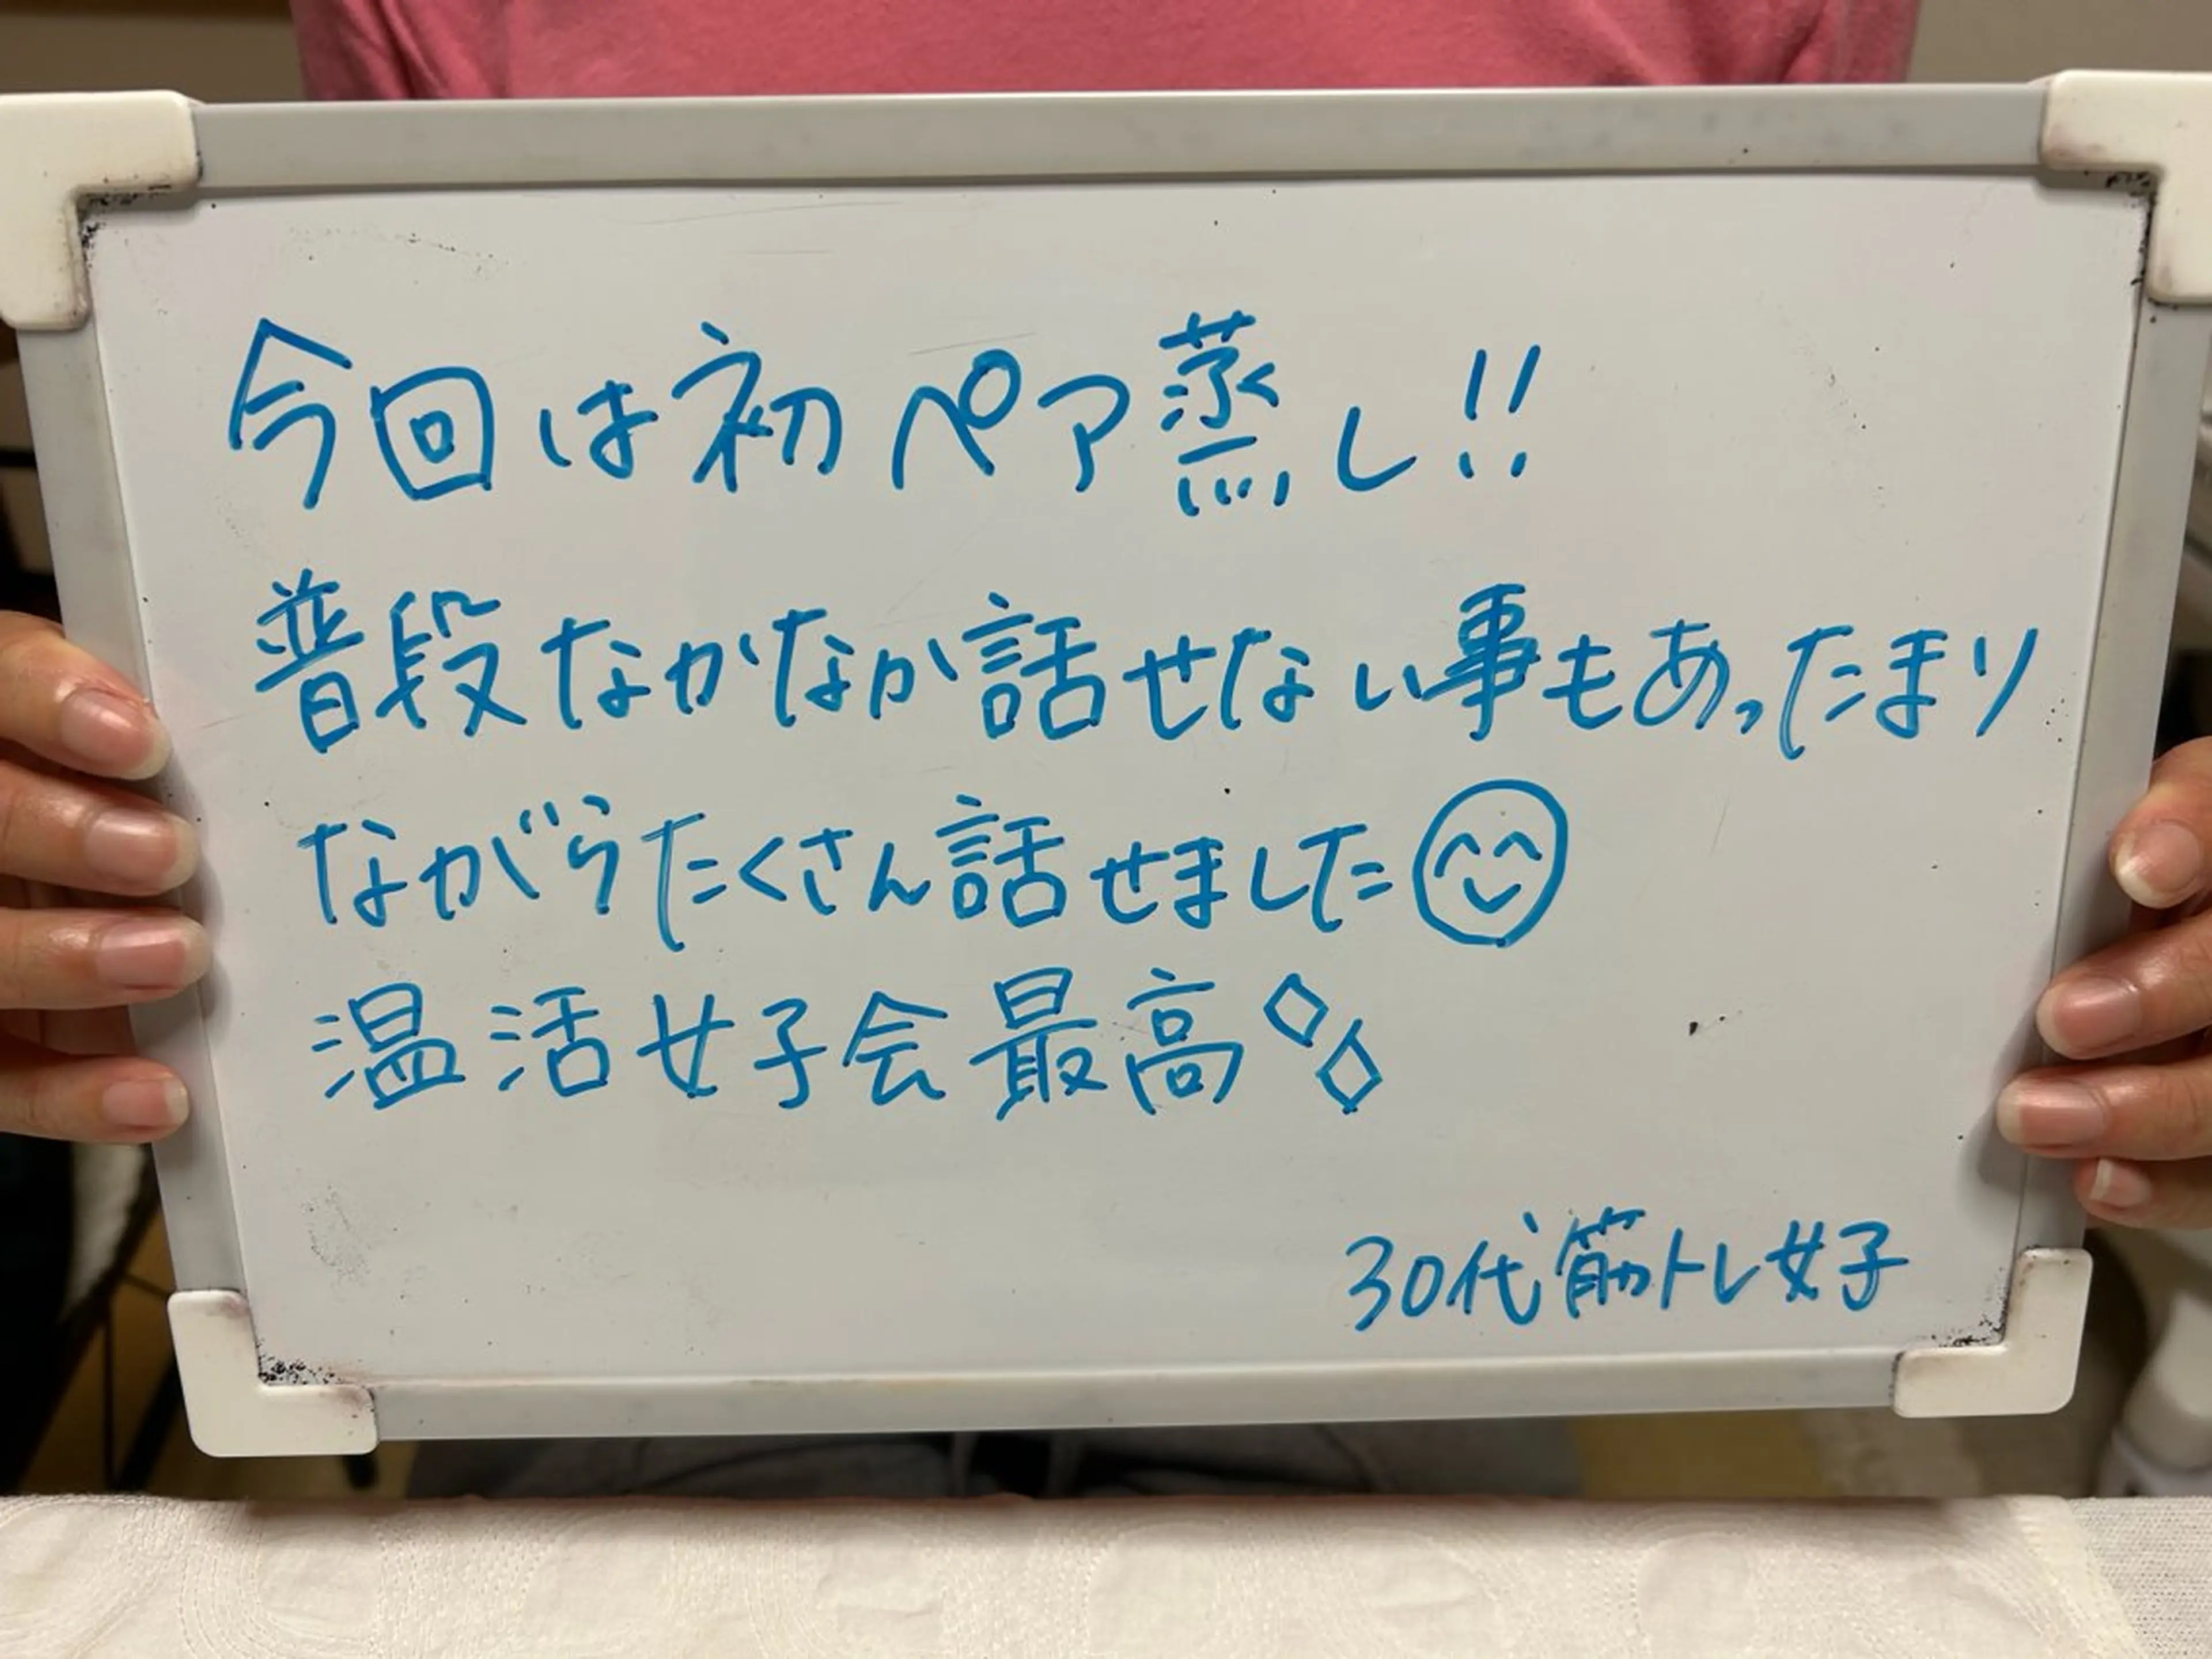 今回は初ペア蒸し!!
普段なかなか話せない事もあったまり
ながらたくさん話せました😊
温活女子会最高
30代筋トレ女子